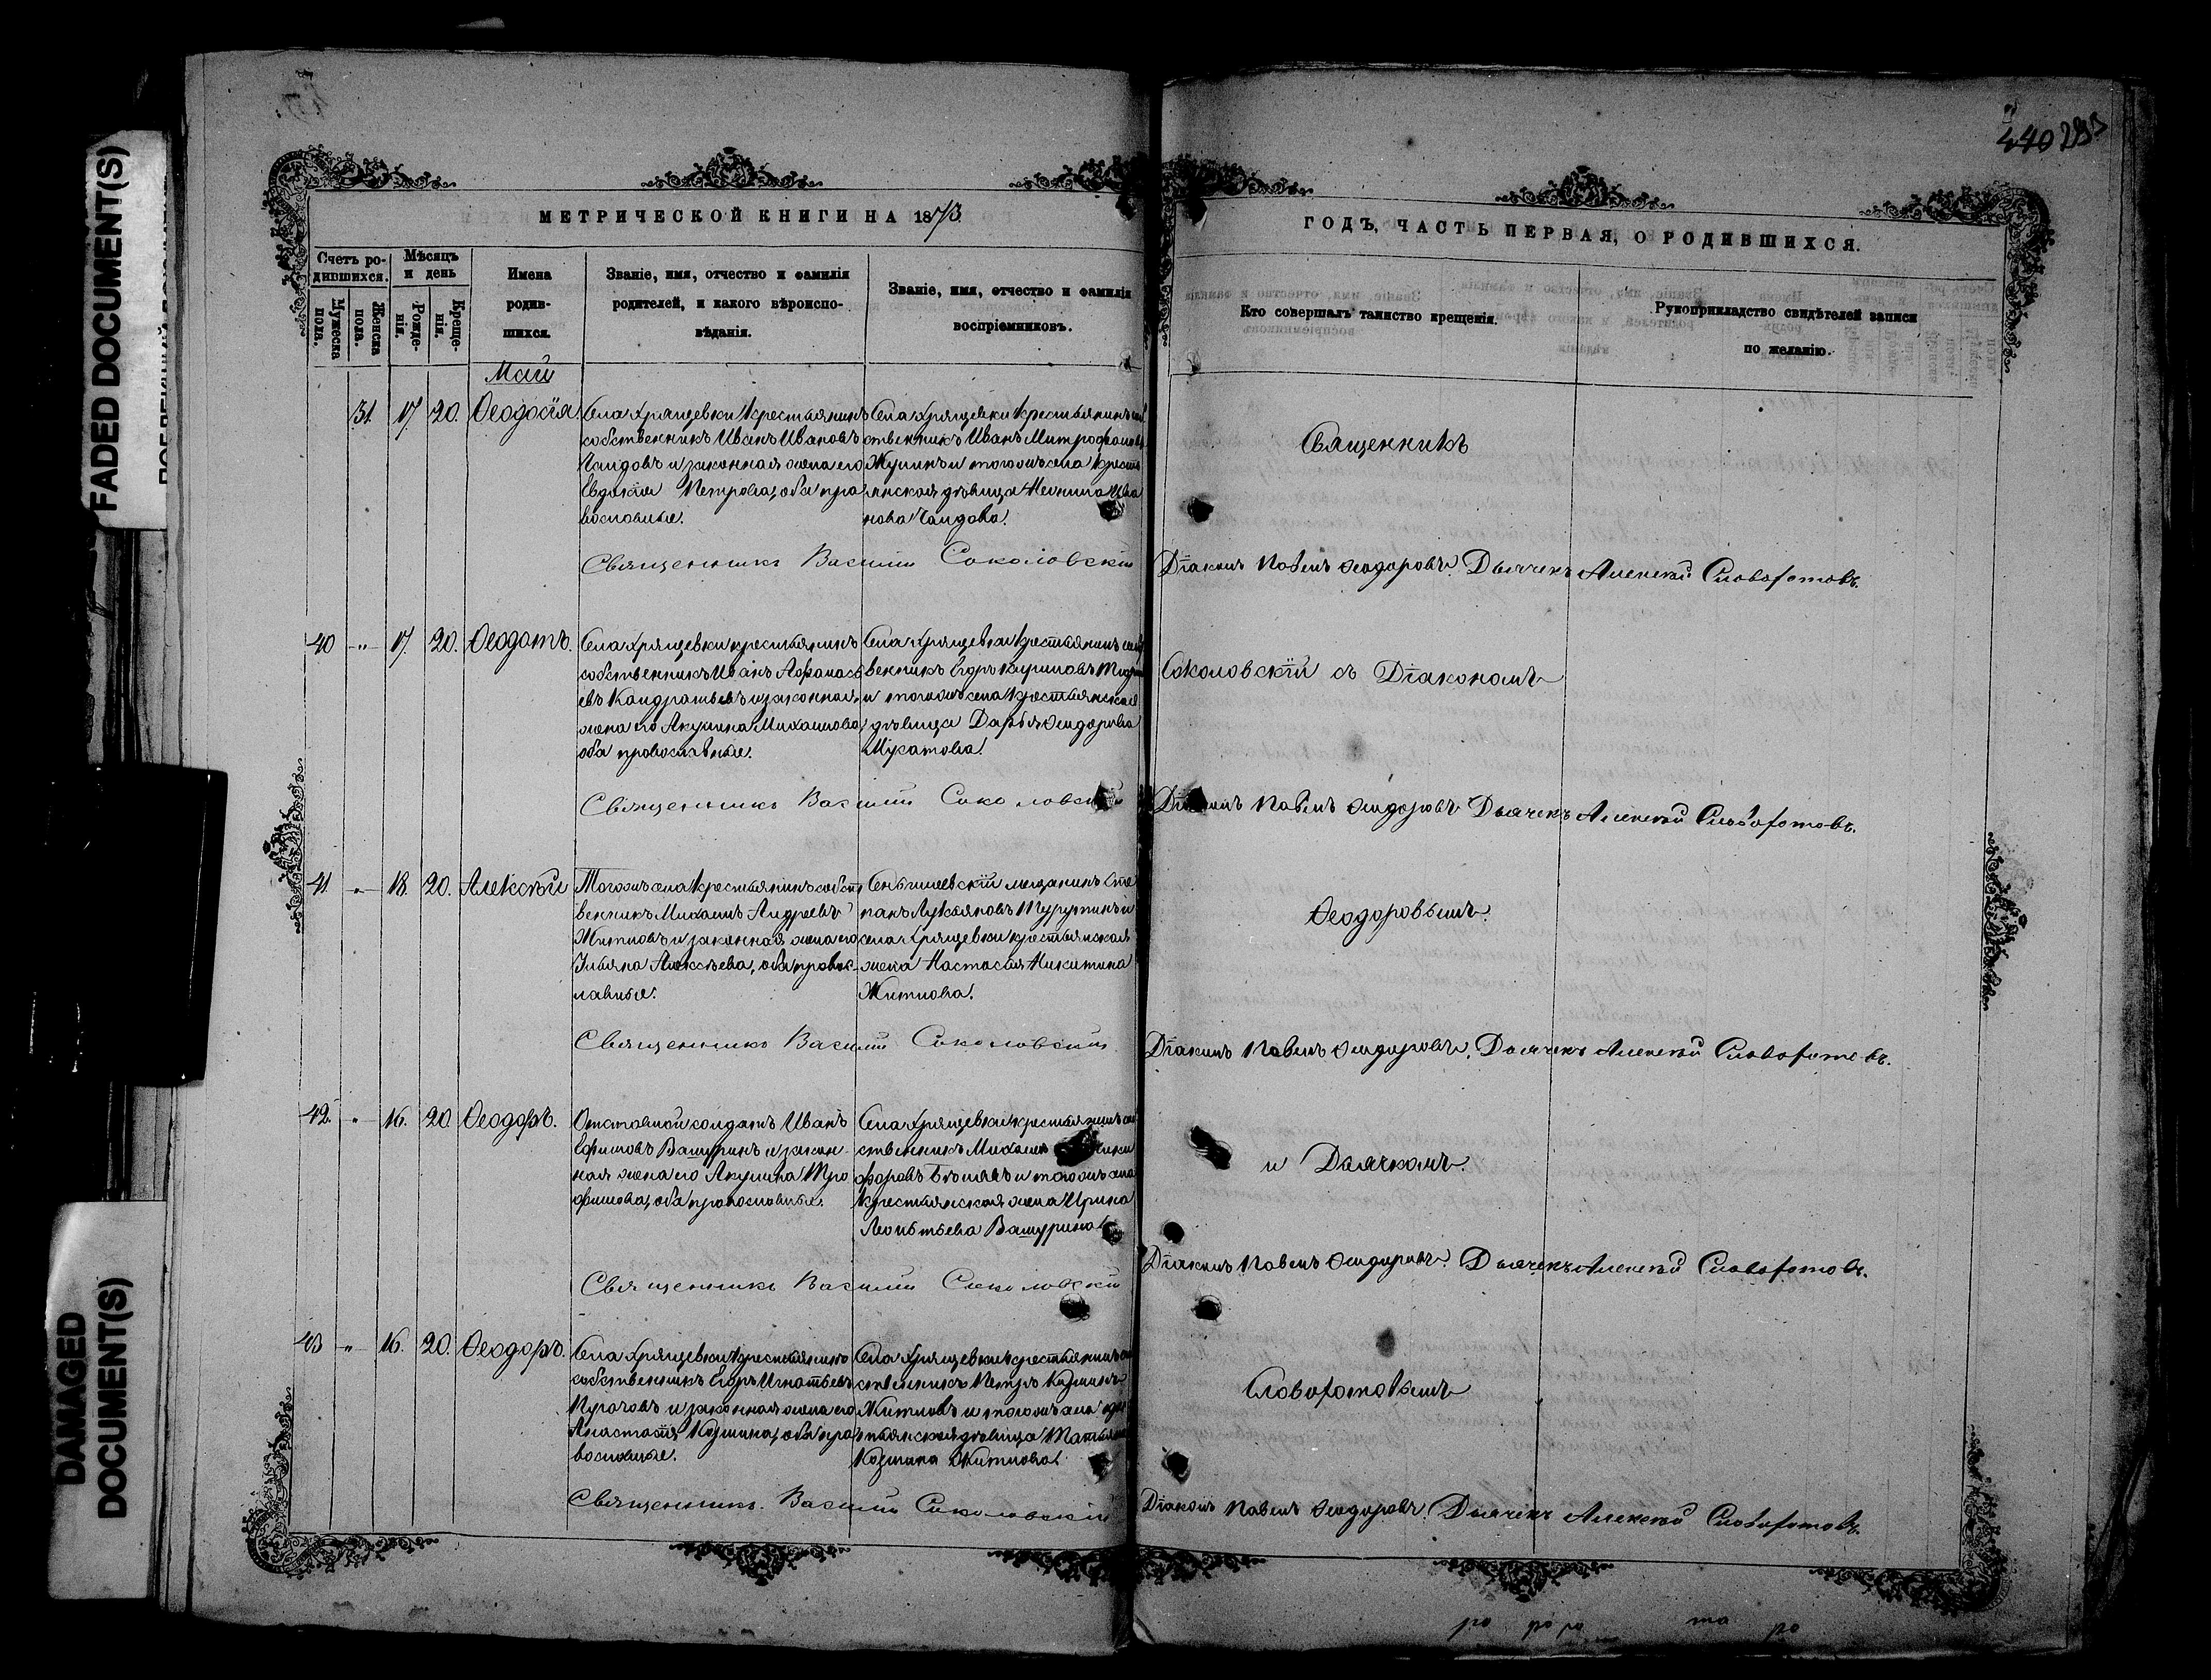 FADED DOCUMENT(S)
DAMAGED
DOCUMENT(S)
440
МЕТРИЧЕСКОЙ КНИГИ НА 1873
ГОДЪ, ЧАСТЬ ПЕРВАЯ, О РОДИВШИХСЯ.
Счетъ ро-
дившихся.
Мужеска
пола.
Женска
пола.
Мѣсяцъ
и день
Рожде-
нія.
Креще-
нія.
Имена
родив-
шихся.
Званіе, имя, отчество и фамилія
родителей, и какого вѣроиспо-
вѣданія.
Званіе, имя, отчество и фамилія
воспріемниковъ.
Кто совершалъ таинство крещенія.
Рукоприкладство свидѣтелей записи
по желанію.
Май
31 17 20. Ѳеодосія
Села Хрящевки крестьянинъ
собственникъ Иванъ Ивановъ
Чаидовъ и законная жена его
Евдокія Петрова, оба пра
вославные.
Села Хрящевки крестьянинъ соб
ственникъ Иванъ Митрофановъ
Жулинъ и тогожъ села крестья
янская дѣвица Ива
нова Чаидова.
Священникъ
Священникъ Василій Соколовскій Діаконъ Павелъ Ѳеодоровъ. Дьячекъ Алексѣй Словохотовъ.
40 " 17. 20. Ѳеодотъ.
Села Хрящевки крестьянинъ
собственникъ Иванъ Аѳанась
евъ Кандратьевъ и законная
жена его Акулина Михаилова,
оба православные.
Села Хрящевки крестьянинъ собст
венникъ Егоръ
и тогожъ села крестьянская
дѣвица Дарья Ѳеодорова
Мукатова.
Соколовскій съ Діакономъ
Священникъ Василій Соколовскій Діаконъ Павелъ Ѳеодоровъ Дьячекъ Алексѣй Словохотовъ.
41 " 18. 20. Алексѣй
Тогожъ села крестьянинъ собст
венникъ Михаилъ Андреевъ
Житловъ и законная жена его
Ульяна Алексѣева, оба правос-
лавные.
Сенгилеевскій мещанинъ Сте
панъ Лукьяновъ Турутинъ и
села Хрящевки крестьянская
жена Настасья Никитина
Житлова.
Ѳеодоровымъ.
Священникъ Василій Соколовскій Діаконъ Павелъ Ѳеодоровъ. Дьячекъ Алексѣй Словохотовъ.
42. " 16. 20 Ѳеодоръ.
Отставной солдатъ Иванъ
Ефимовъ Вашуринъ и закон-
ная жена его Акулина Тро
фимова, оба православные.
Села Хрящевки крестьянинъ соб
ственникъ Михаилъ Ники
форовъ Бѣляевъ и тогожъ села
крестьянская жена Ирина
Леонтьева Вашурина.
и Дьячкомъ.
Священникъ Василій Соколовскій Діаконъ Павелъ Ѳеодоровъ. Дьячекъ Алексѣй Словохотовъ.
43 " 16. 20. Ѳеодоръ.
Села Хрящевки крестьянинъ
собственникъ Егоръ Игнатьевъ
и законная жена его
Анастасія Козмина, оба пра
вославные.
Села Хрящевки крестьянинъ соб
ственникъ Петръ Козминъ
Житловъ и тогожъ села крес
тьянская дѣвица Татьяна
Козмина Житлова.
Словохотовымъ
Священникъ. Василій Соколовскій Діаконъ Павелъ Ѳеодоровъ. Дьячекъ Алексѣй Словохотовъ.
ро ро ро та ро